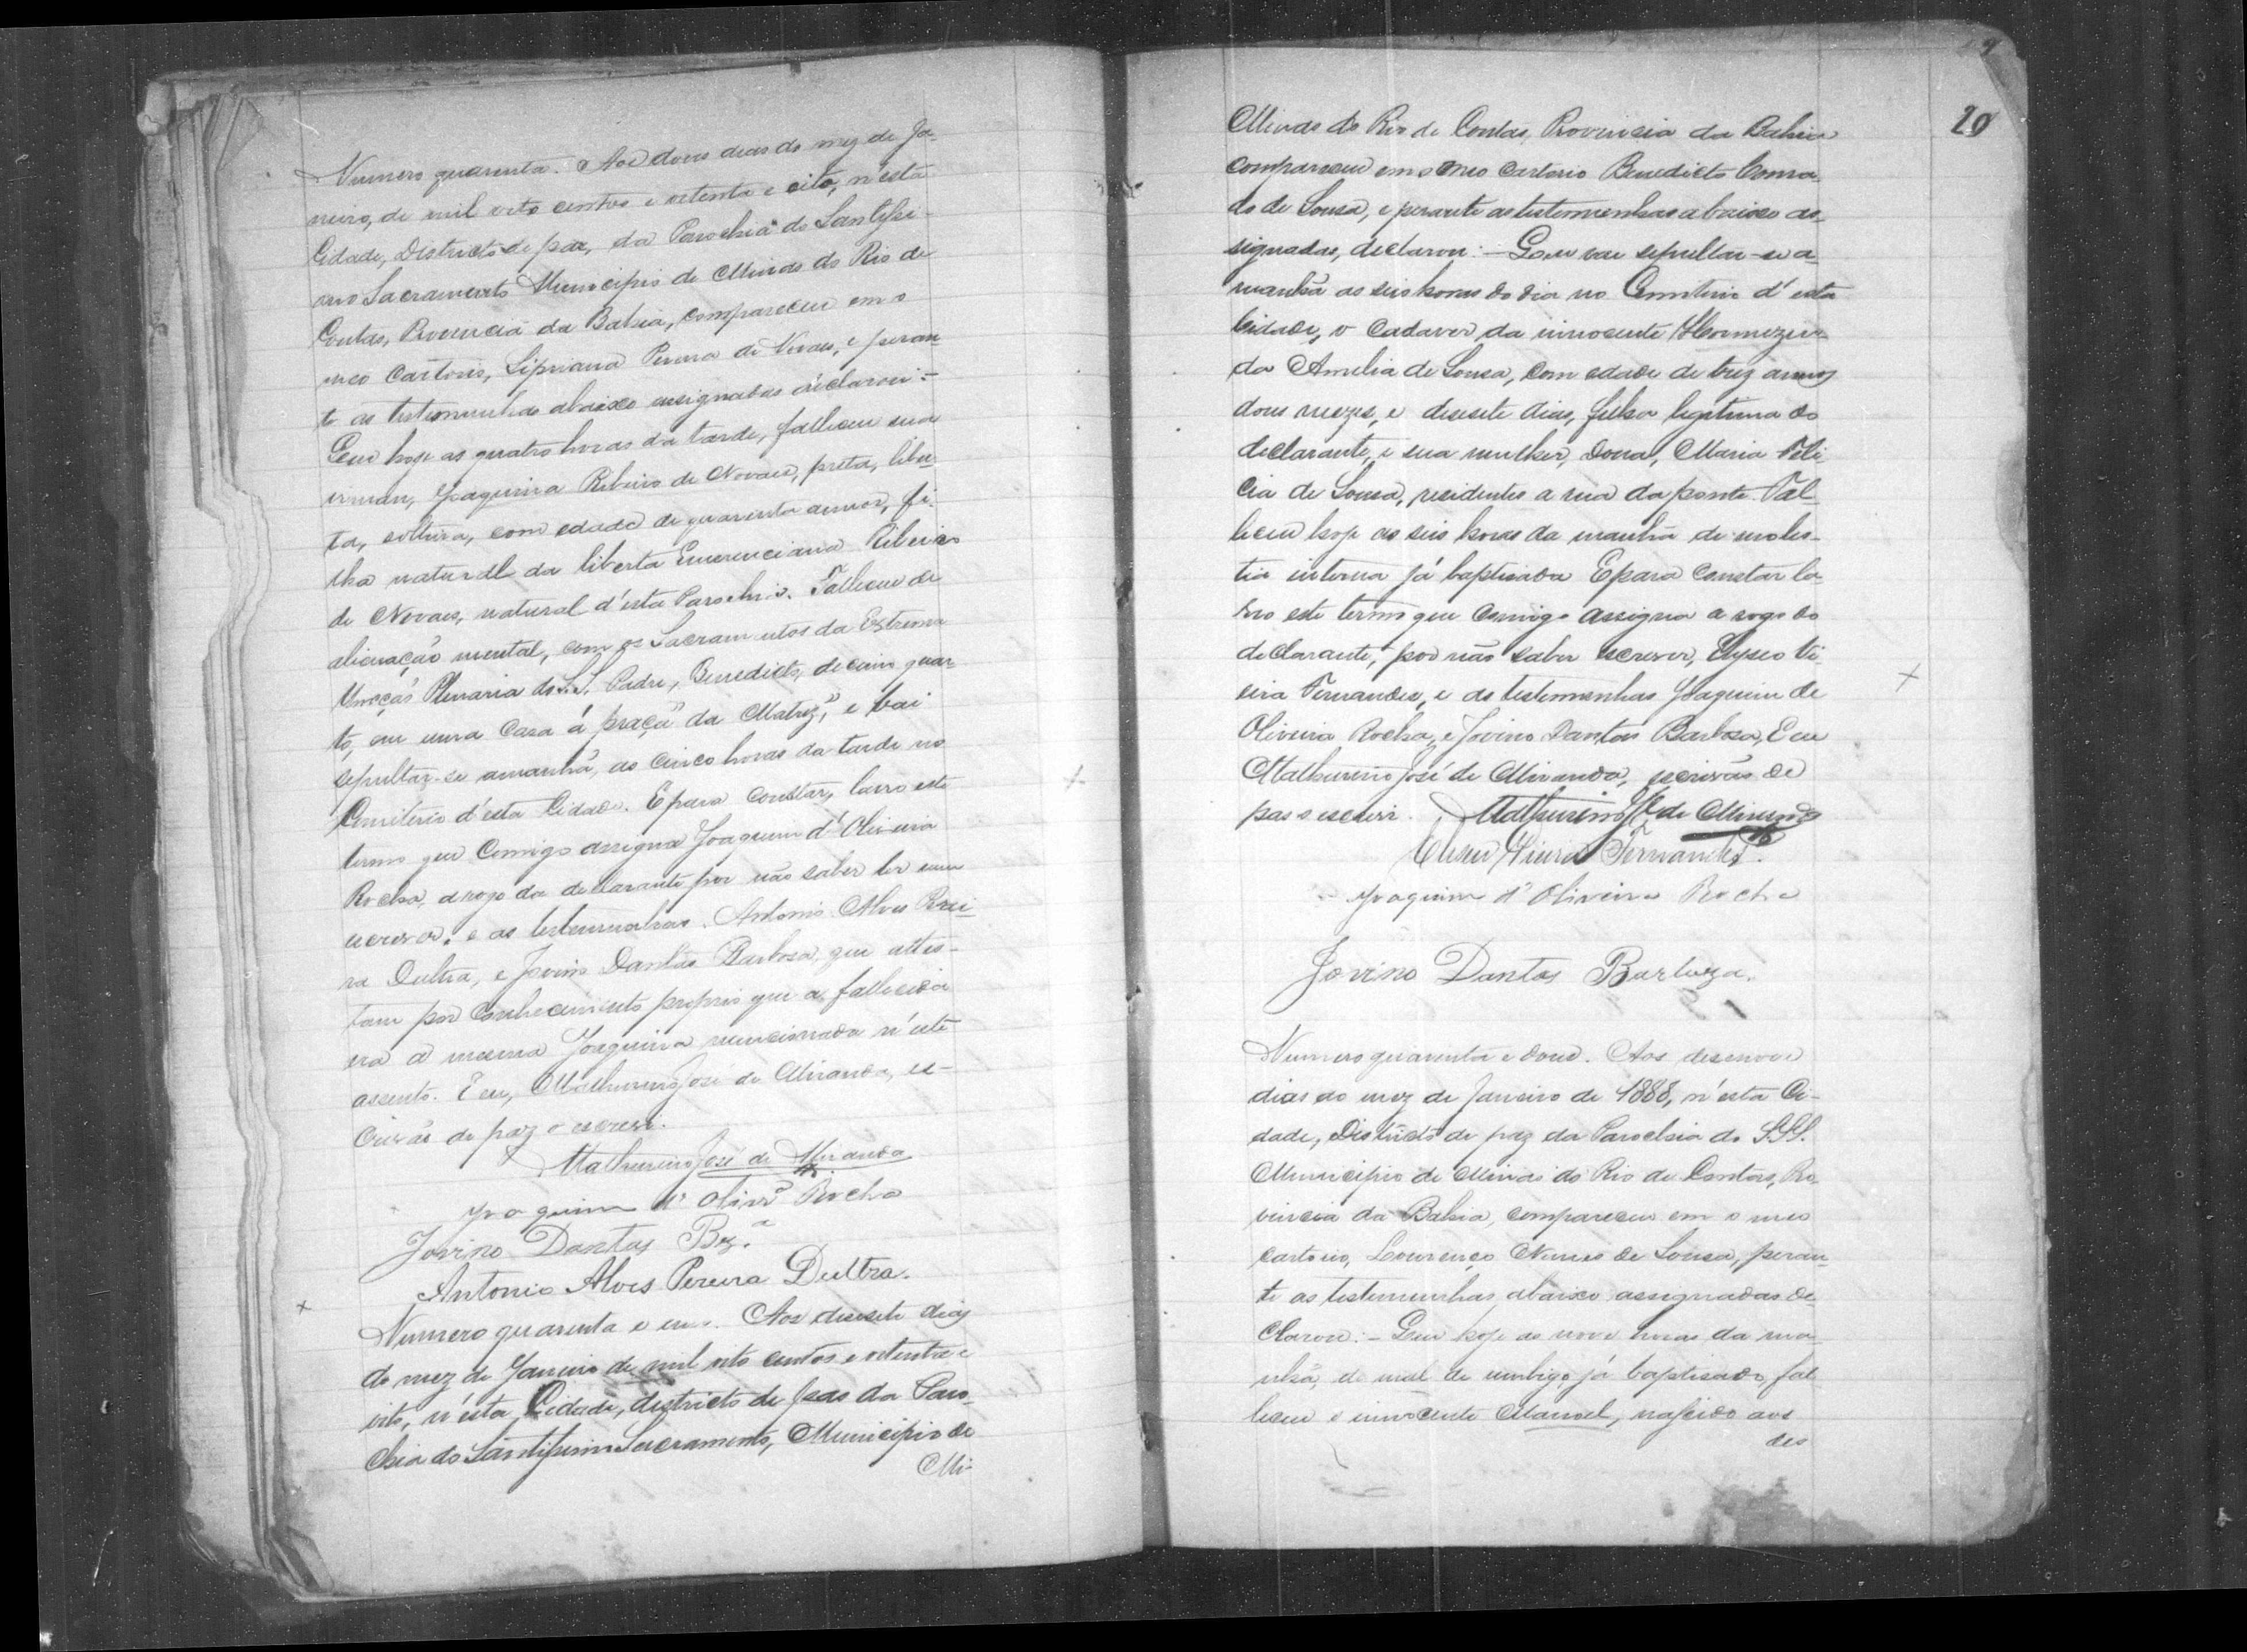 Numero quarenta. Aos dous dias do mez de Ja-
neiro, de mil oito centos e oitenta e oito, n'esta
Cidade, Districto de paz, da Parochia do Santissi-
mo Sacramento Municipio de Minas do Rio de
Contas, Provincia da Bahia, compareceu em o
meo Cartorio, Lipriana Pereira de Novaes, e peran-
te as testemunhas abaixo assignadas declarou:-
Que hoje as quatro horas da tarde, falleceu sua
irman, Joaquina Ribeiro de Novaes, preta, liber-
ta, solteira, com edade de quarenta annos, fi-
lha natural da liberta Emerenciana Ribeiro
de Novaes, natural d'esta Parochia. Falleceu de
alienação mental, com os Sacramentos da Estrema
Uncção Plenaria do S.S. Padre, Benedicto, decimo quar-
to, em uma casa á praça da Matriz, e vai
sepultar-se amanhã, as cinco horas da tarde no
Cemiterio d'esta Cidade. E para constar, lavro este
termo que Comigo assigna Joaquim d'Oliveira
Rocha, a rogo da declarante por não saber ler nem
escrever, e as testemunhas. Antonio Alves Perei-
ra Dultra, e Jovino Dantas Barbosa, que attes-
tam por conhecimento proprio que a fallecida
era a mesma Joaquina mencionada n'este
assento. E eu, Mathurino José de Miranda, es-
crivão de paz o escrevi.
Mathurino José de Miranda
Joaquim d'Olivra Rocha
Jovino Dantas Bza
Antonio Alves Pereira Dultra.
Numero quarenta e um. Aos desesete dias
do mez de Janeiro de mil oito centos e oitenta e
oito, n'esta Cidade, districto de pas da Paro-
chia do Santissimo Sacramento, Municipio de
Mi-
20
Minas do Rio de Contas, Provincia da Bahia
compareceu em o meo cartorio Benedicto Conra-
do de Sousa, e perante as testemunhas abaixo as-
signadas, declarou:- Que vai sepultar-se a-
manhã as seis horas do dia no Cemiterio d'esta
Cidade, o Cadaver da innocente Hermezin-
da Amelia de Sousa, com edade de trez annos
dous mezes, e desesete dias, filha legitima do
declarante, e sua mulher, Dona, Maria Feli-
cia de Sousa, residentes a rua da ponte. Fal-
leceu hoje as seis horas da manhã de moles-
tia interna já baptisada E para constar la-
vro este termo que comigo assigna a rogo do
declarante, por não saber escrever, Elyseo Vi-
eira Fernandes, e as testemunhas Joaquim de
Oliveira Rocha, e Jovino Dantas Barbosa, E eu
Mathurino José de Miranda, escrivão de
pas o escrevi. Mathurino Jé de Miranda
Eliseu Vieira Fernandes.
Joaquim d'Oliveira Rocha
Jovino Dantas Barboza.
Numero quarenta e dous. Aos desenove
dias do mez de Janeiro de 1888, n'esta Ci-
dade, Districto de paz da Parochia do S.S.S.
Municipio de Minas do Rio de Contas, Pro-
vincia da Bahia, compareceu em o meo
cartorio, Lourenço Nunes de Sousa, peran-
te as testemunhas abaixo assignadas de-
clarou:- Que hoje as nove horas da ma-
nhã, de mal de umbigo já baptisado, fal-
leceu o innocente Manoel, nascido aos
des